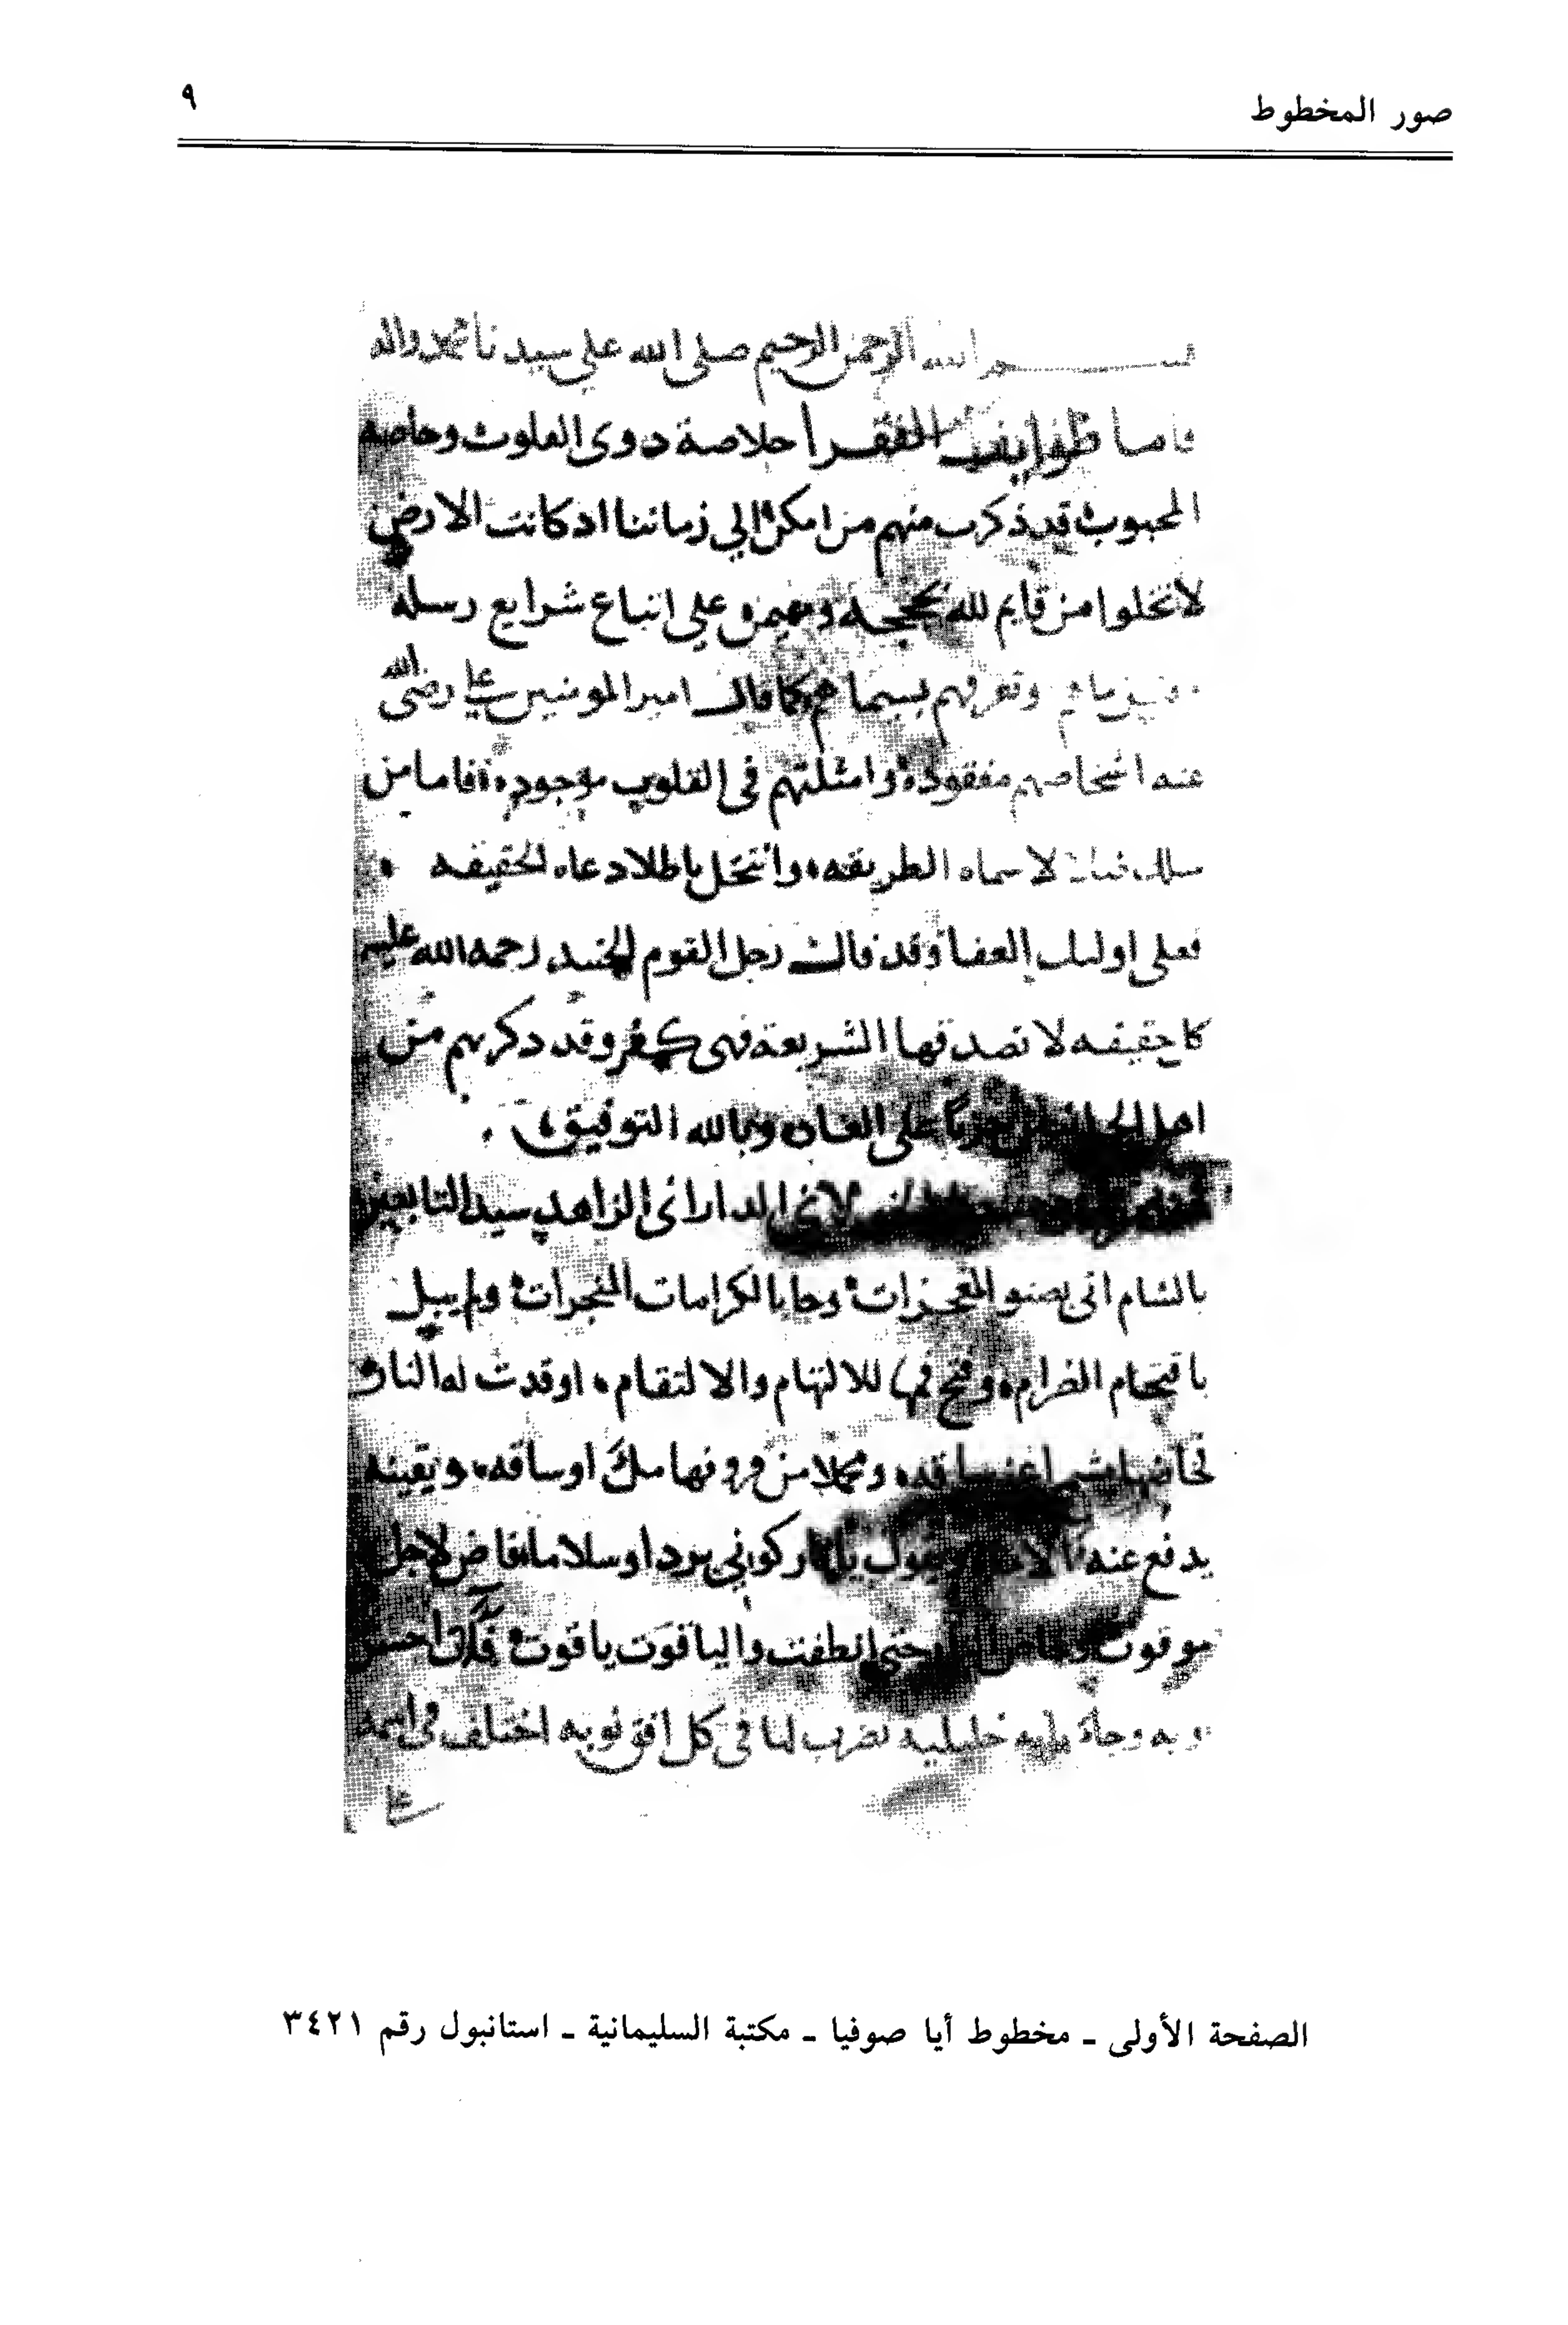 صور المخطوط
٩
بسم الله الرحمن الرحيم صلى الله على سيدنا محمد واله
فاما طوايف الفقرا خلاصة ذوى القلوب وخاصه
المحبوب قد ذكرت منهم من امكن الي زماننا اد كانت الارض
لا تخلوا من قايم لله بحججه ومهيمن على اتباع شرايع رسله
وتعرفهم بسيماهم كما قال امير المومنين علي رضي الله
عنه اشخاصهم مفقوده وامثلتهم في القلوب موجوده فاما من
لا سماه الطريقه وانتحل باطلا دعاه الحقيقه
فعلى اوليك العفا وقد قال رجل القوم الجنيد رحمه الله عليه
كل حقيقه لا تصدقها الشريعة فهى كفر وقد دكرتهم من
اهل على العاده وبالله التوفيق
الدارانى الزاهد سيد التابعين
بالشام اتى بصنو المعجزات وحابا الكرامات المنجزات ولم يبل
باقتحام الضرام وفتح فمها للالتهام والالتقام اوقدت له النار
ويقينه
يدفع عنه ويقول يا نار كوني بردا وسلاما لاجل
موقوت حتى انطفت والياقوت ياقوت فكان احسن
خليليه تضرب لنا في كل افق نوبه اختلف في اسمه
الصفحة الأولى ـ مخطوط أيا صوفيا ـ مكتبة السليمانية ـ استانبول رقم ٣٤٢١